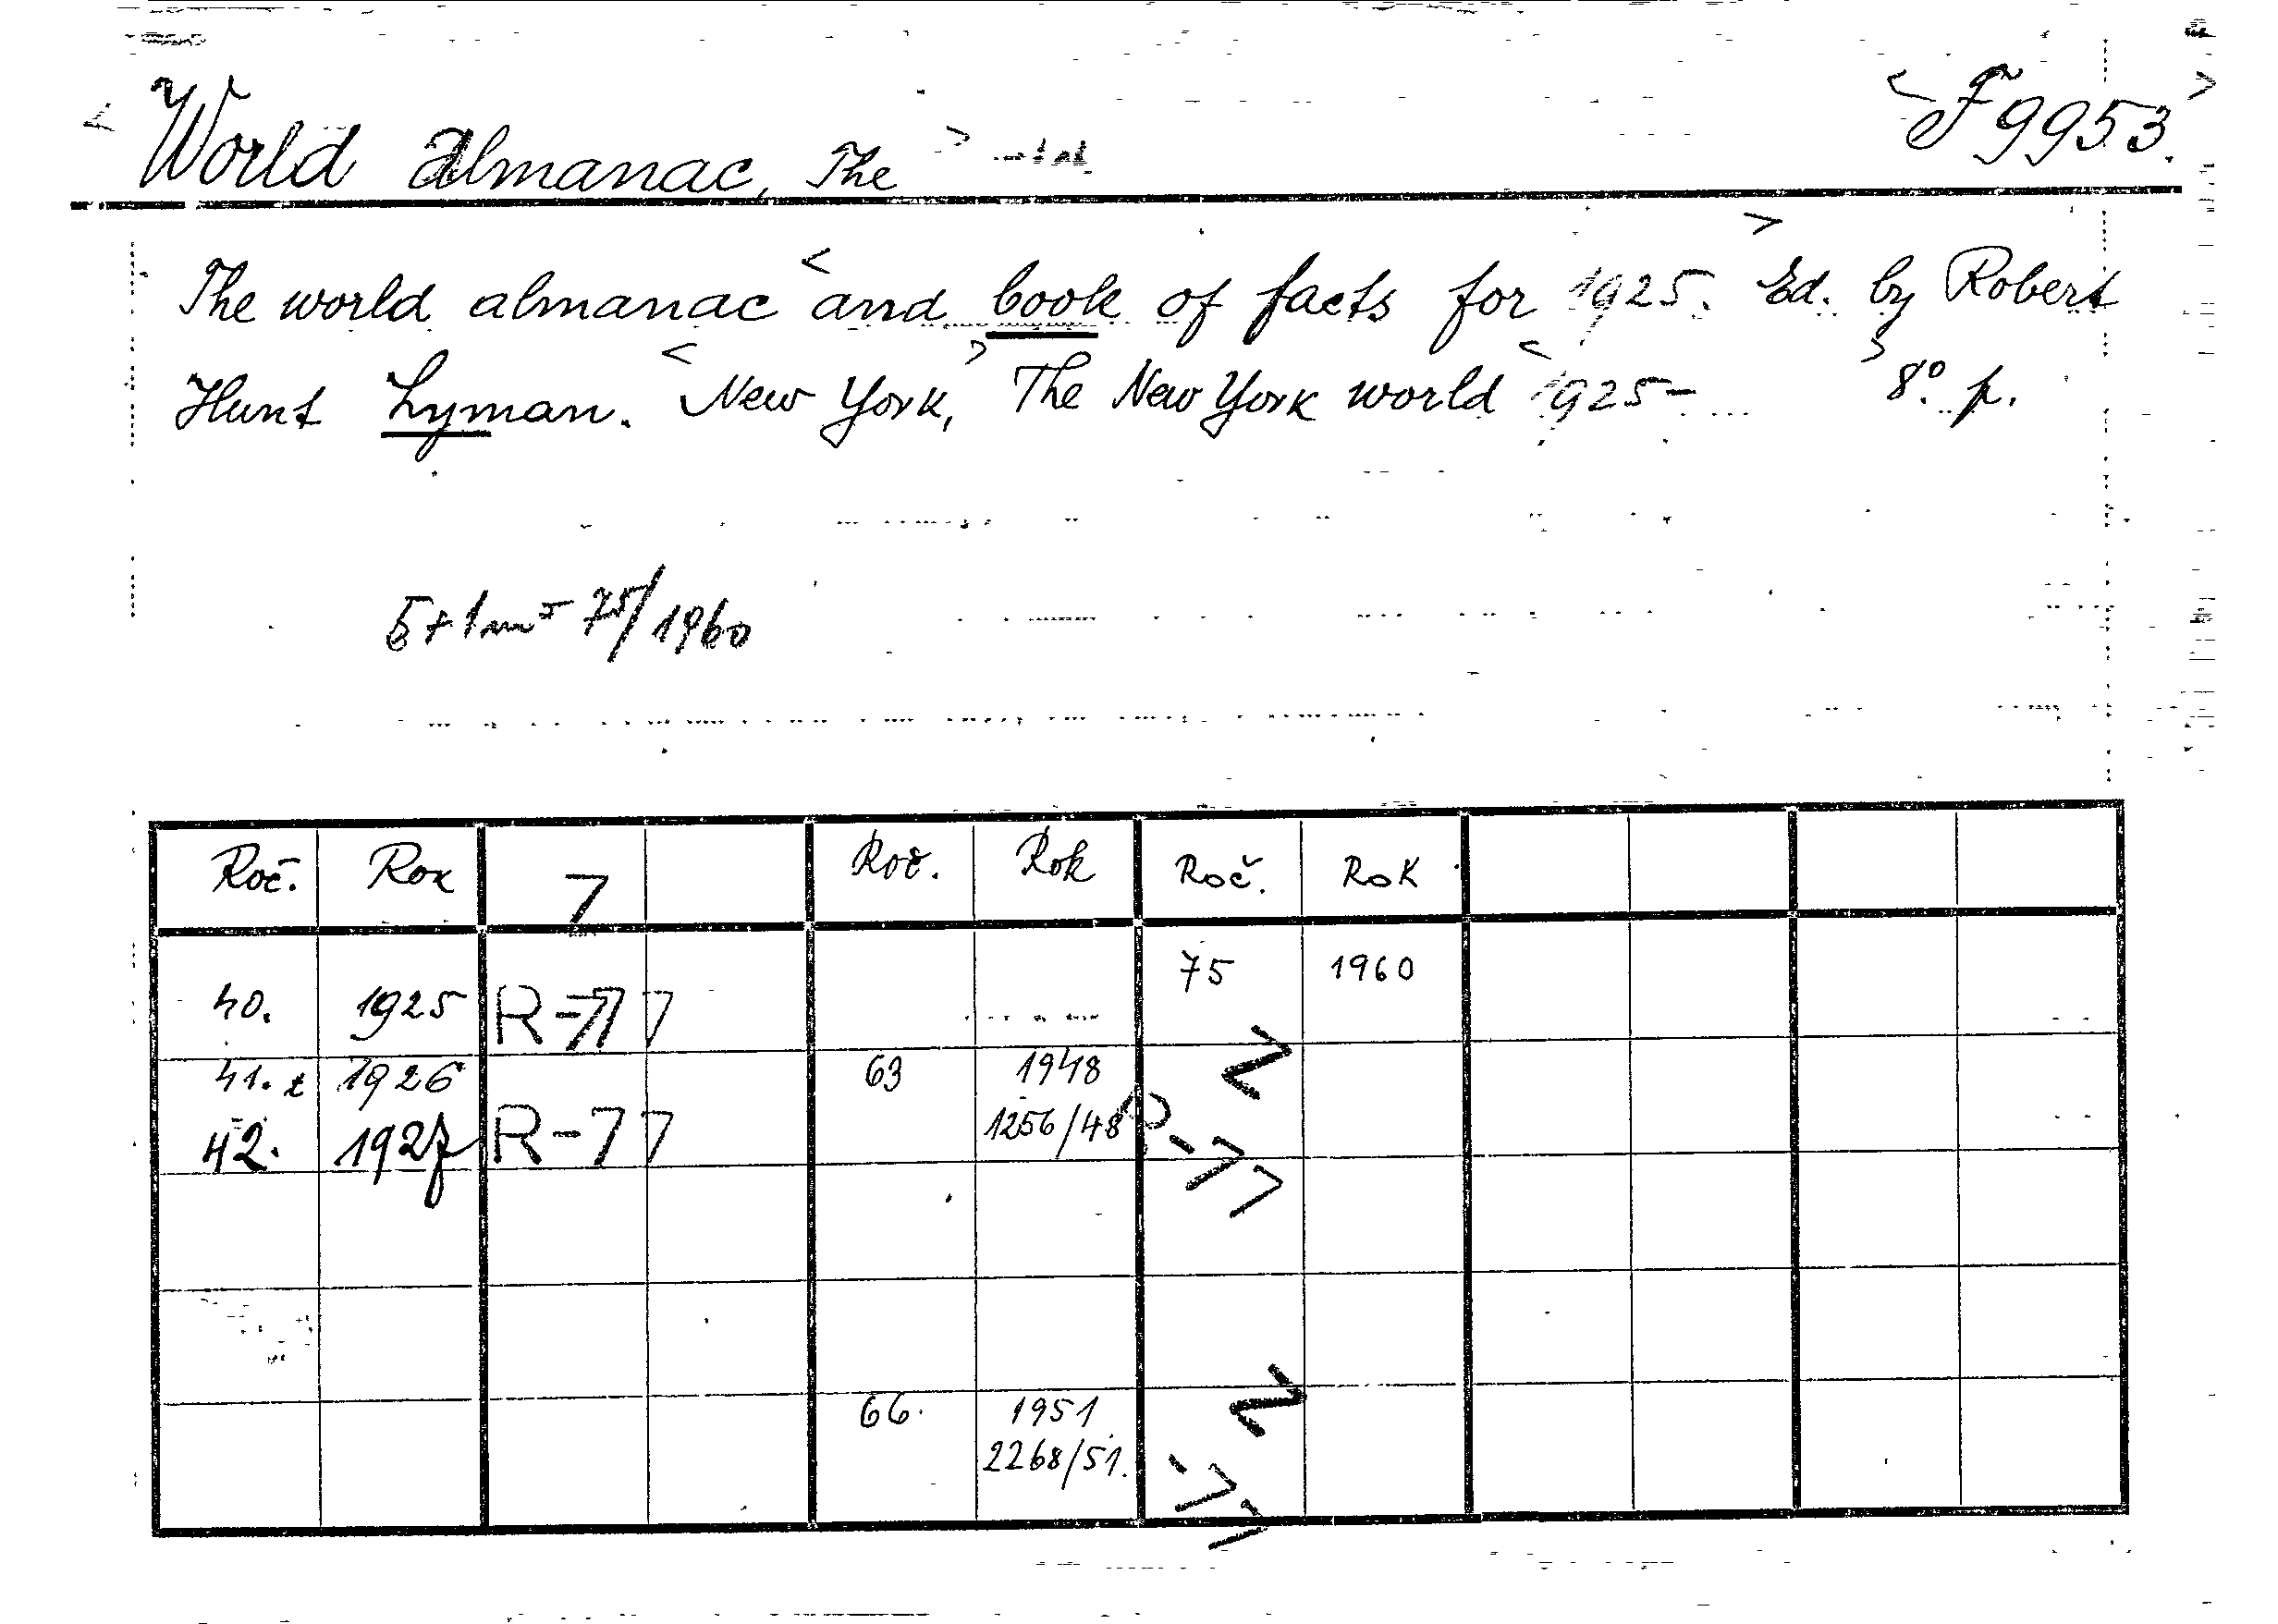 World almanac, The F 9953.
The world almanac and book of facts for 1925. Ed. by Robert
Hunt Lyman. New York, The New York world 1925- 8°. p.
75/1960
Roč. Rok Z Roč. Rok Roč. Rok
75 1960
40. 1925 R-77
41. 1926 63 1948
42. 1927 R-77 1256/48 R-77
66. 1951
2268/51. -77